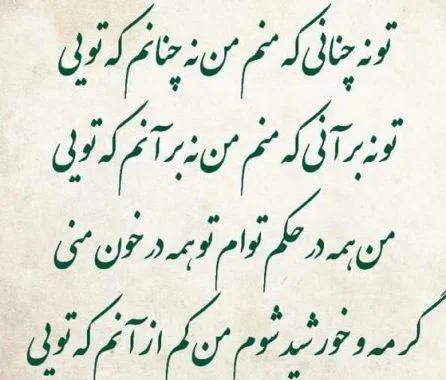 تو نه چنانی که منم من نه چنانم که تویی
تو نه بر آنی که منم من نه بر آنم که تویی
من همه در حکم توام تو همه در خون منی
گر مه و خورشید شوم من کم از آنم که تویی